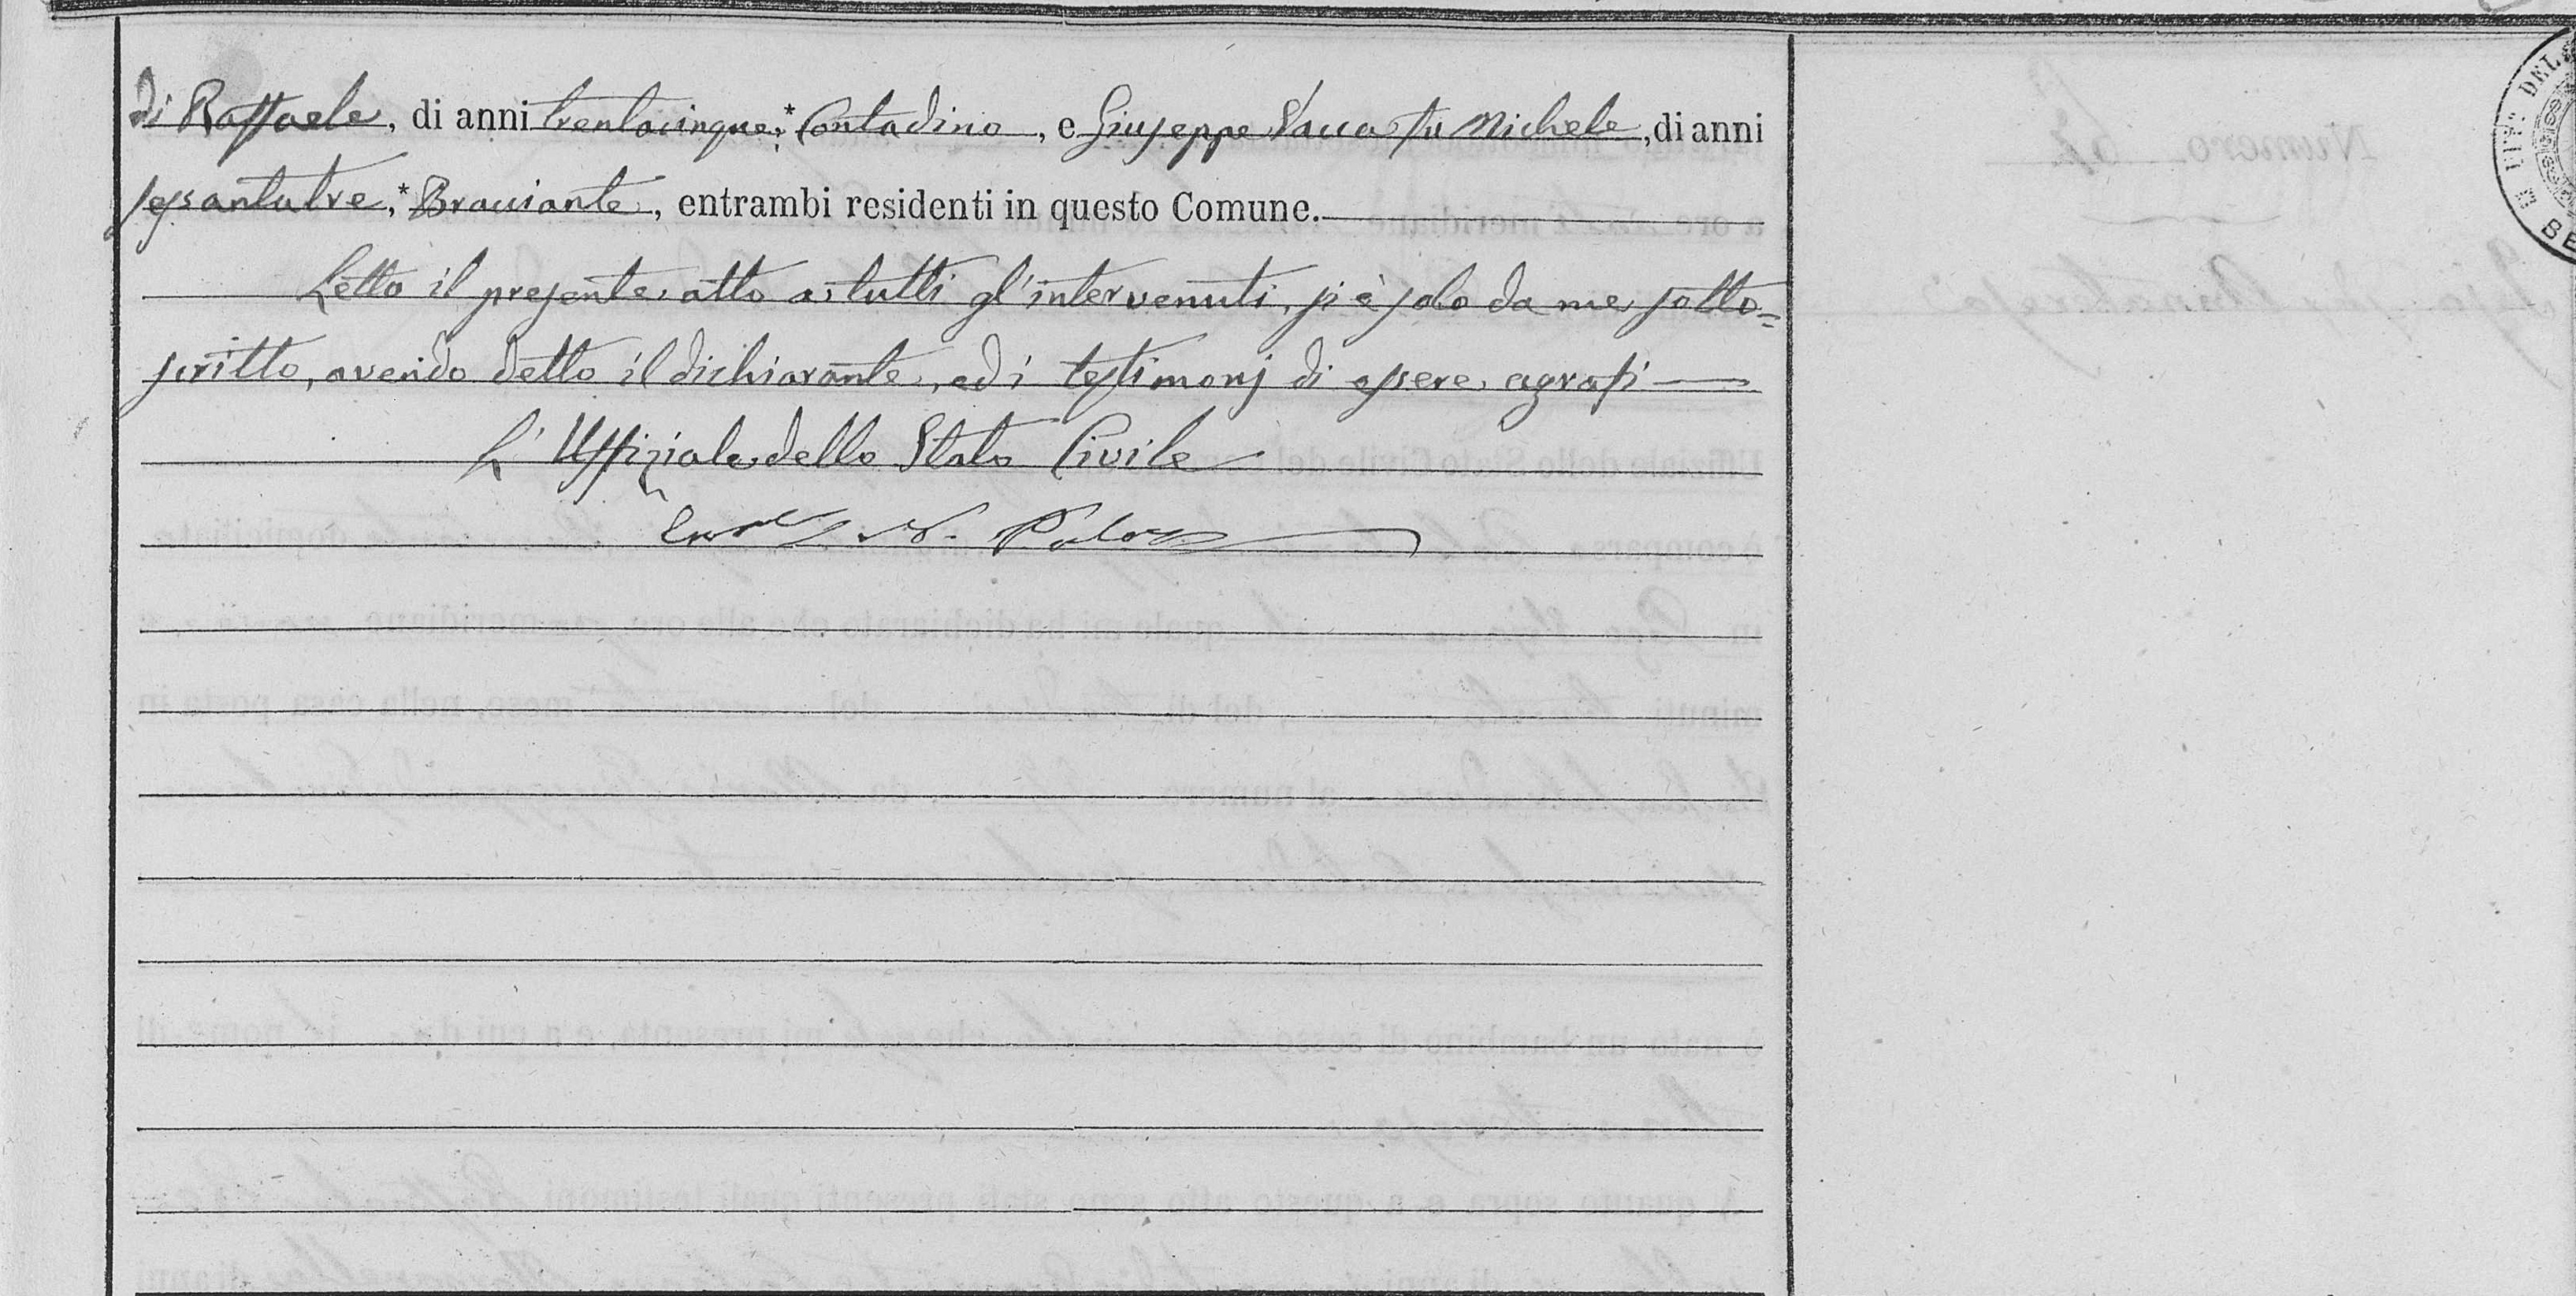 di Raffaele, di anni trentacinque,* Contadino, e Giuseppe Vacca fu Michele, di anni
sessantatre,* Bracciante, entrambi residenti in questo Comune.
Letto il presente atto a tutti gl'intervenuti, si è solo da me sotto=
scritto, avendo detto il dichiarante, ed i testimonj di essere agrafi
L'Uffiziale dello Stato Civile